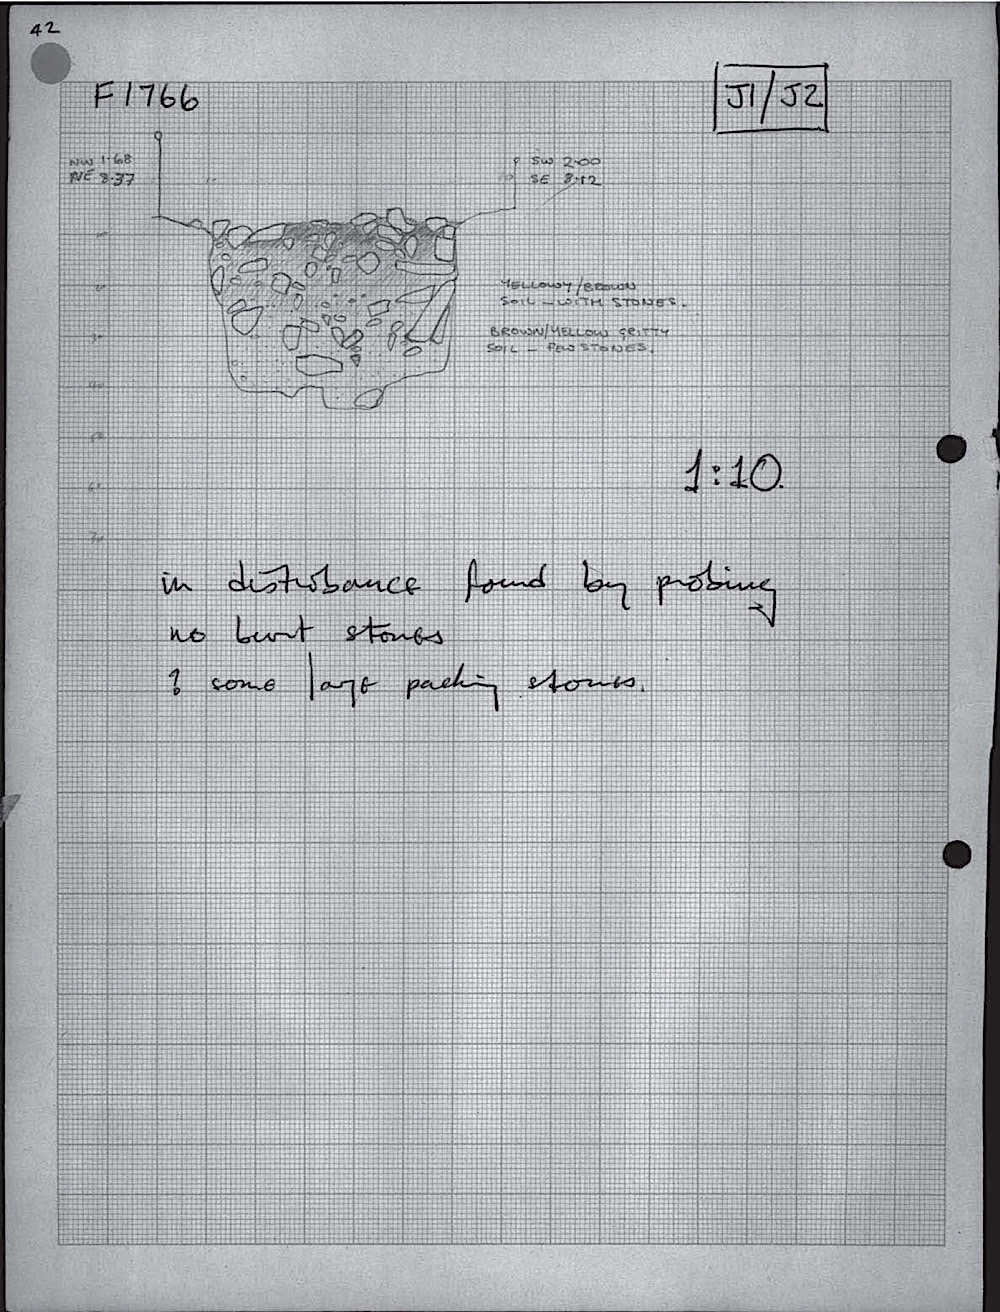 42
F1766
J1/J2
NW 1.68
NE 8.37
SW 2.00
SE 8.12
YELLOWY/BROWN
SOIL - WITH STONES.
BROWN/YELLOW GRITTY
SOIL - FEW STONES.
1:10.
in disturbance found by probing
no burnt stones
? some large packing stones.